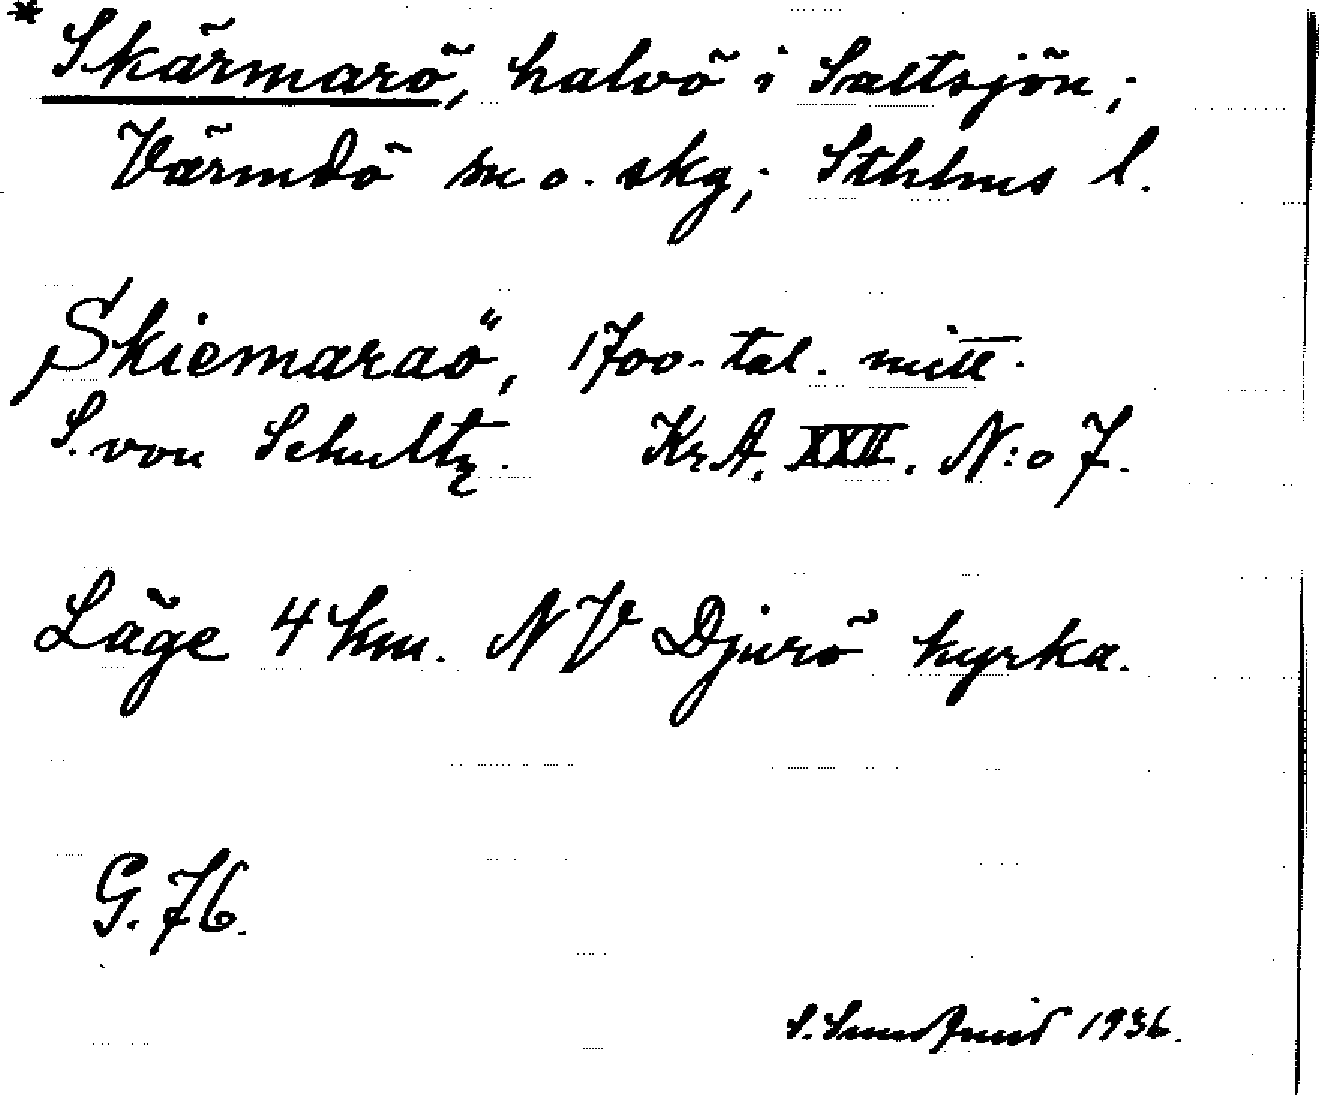 * Skärmarö, halvö i Saltsjön;
Värmdö sn o. skg; Sthlms l.
Skiemaraö, 1700-tal. mitt.
S. von Schultz. KrA. XXII. N:o 7.
Läge 4 km. NV Djurö kyrka.
G. 76.
S. 1936.